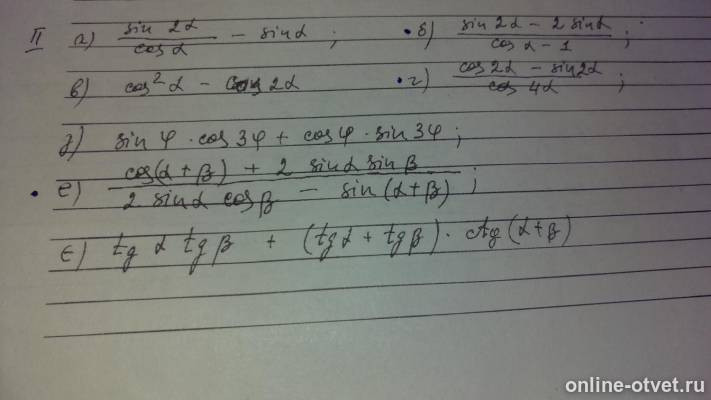 II а) sin 2α / cos α − sin α ; • б) sin 2α − 2 sin α / cos α − 1 ;
в) cos² α − cos 2α • г) cos 2α − sin 2α / cos 4α ;
д) sin φ · cos 3φ + cos φ · sin 3φ ;
• е) cos(α + β) + 2 sin α sin β / 2 sin α cos β − sin (α + β) ;
є) tg α tg β + (tg α + tg β) · ctg (α + β)
online-otvet.ru